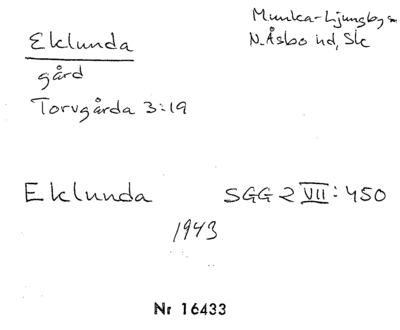 Eklunda
Munka-Ljungby sn
N. Åsbo hd, Sk
gård
Torvgårda 3:19
Eklunda SGG 2 VII: 450
1943
Nr 16433